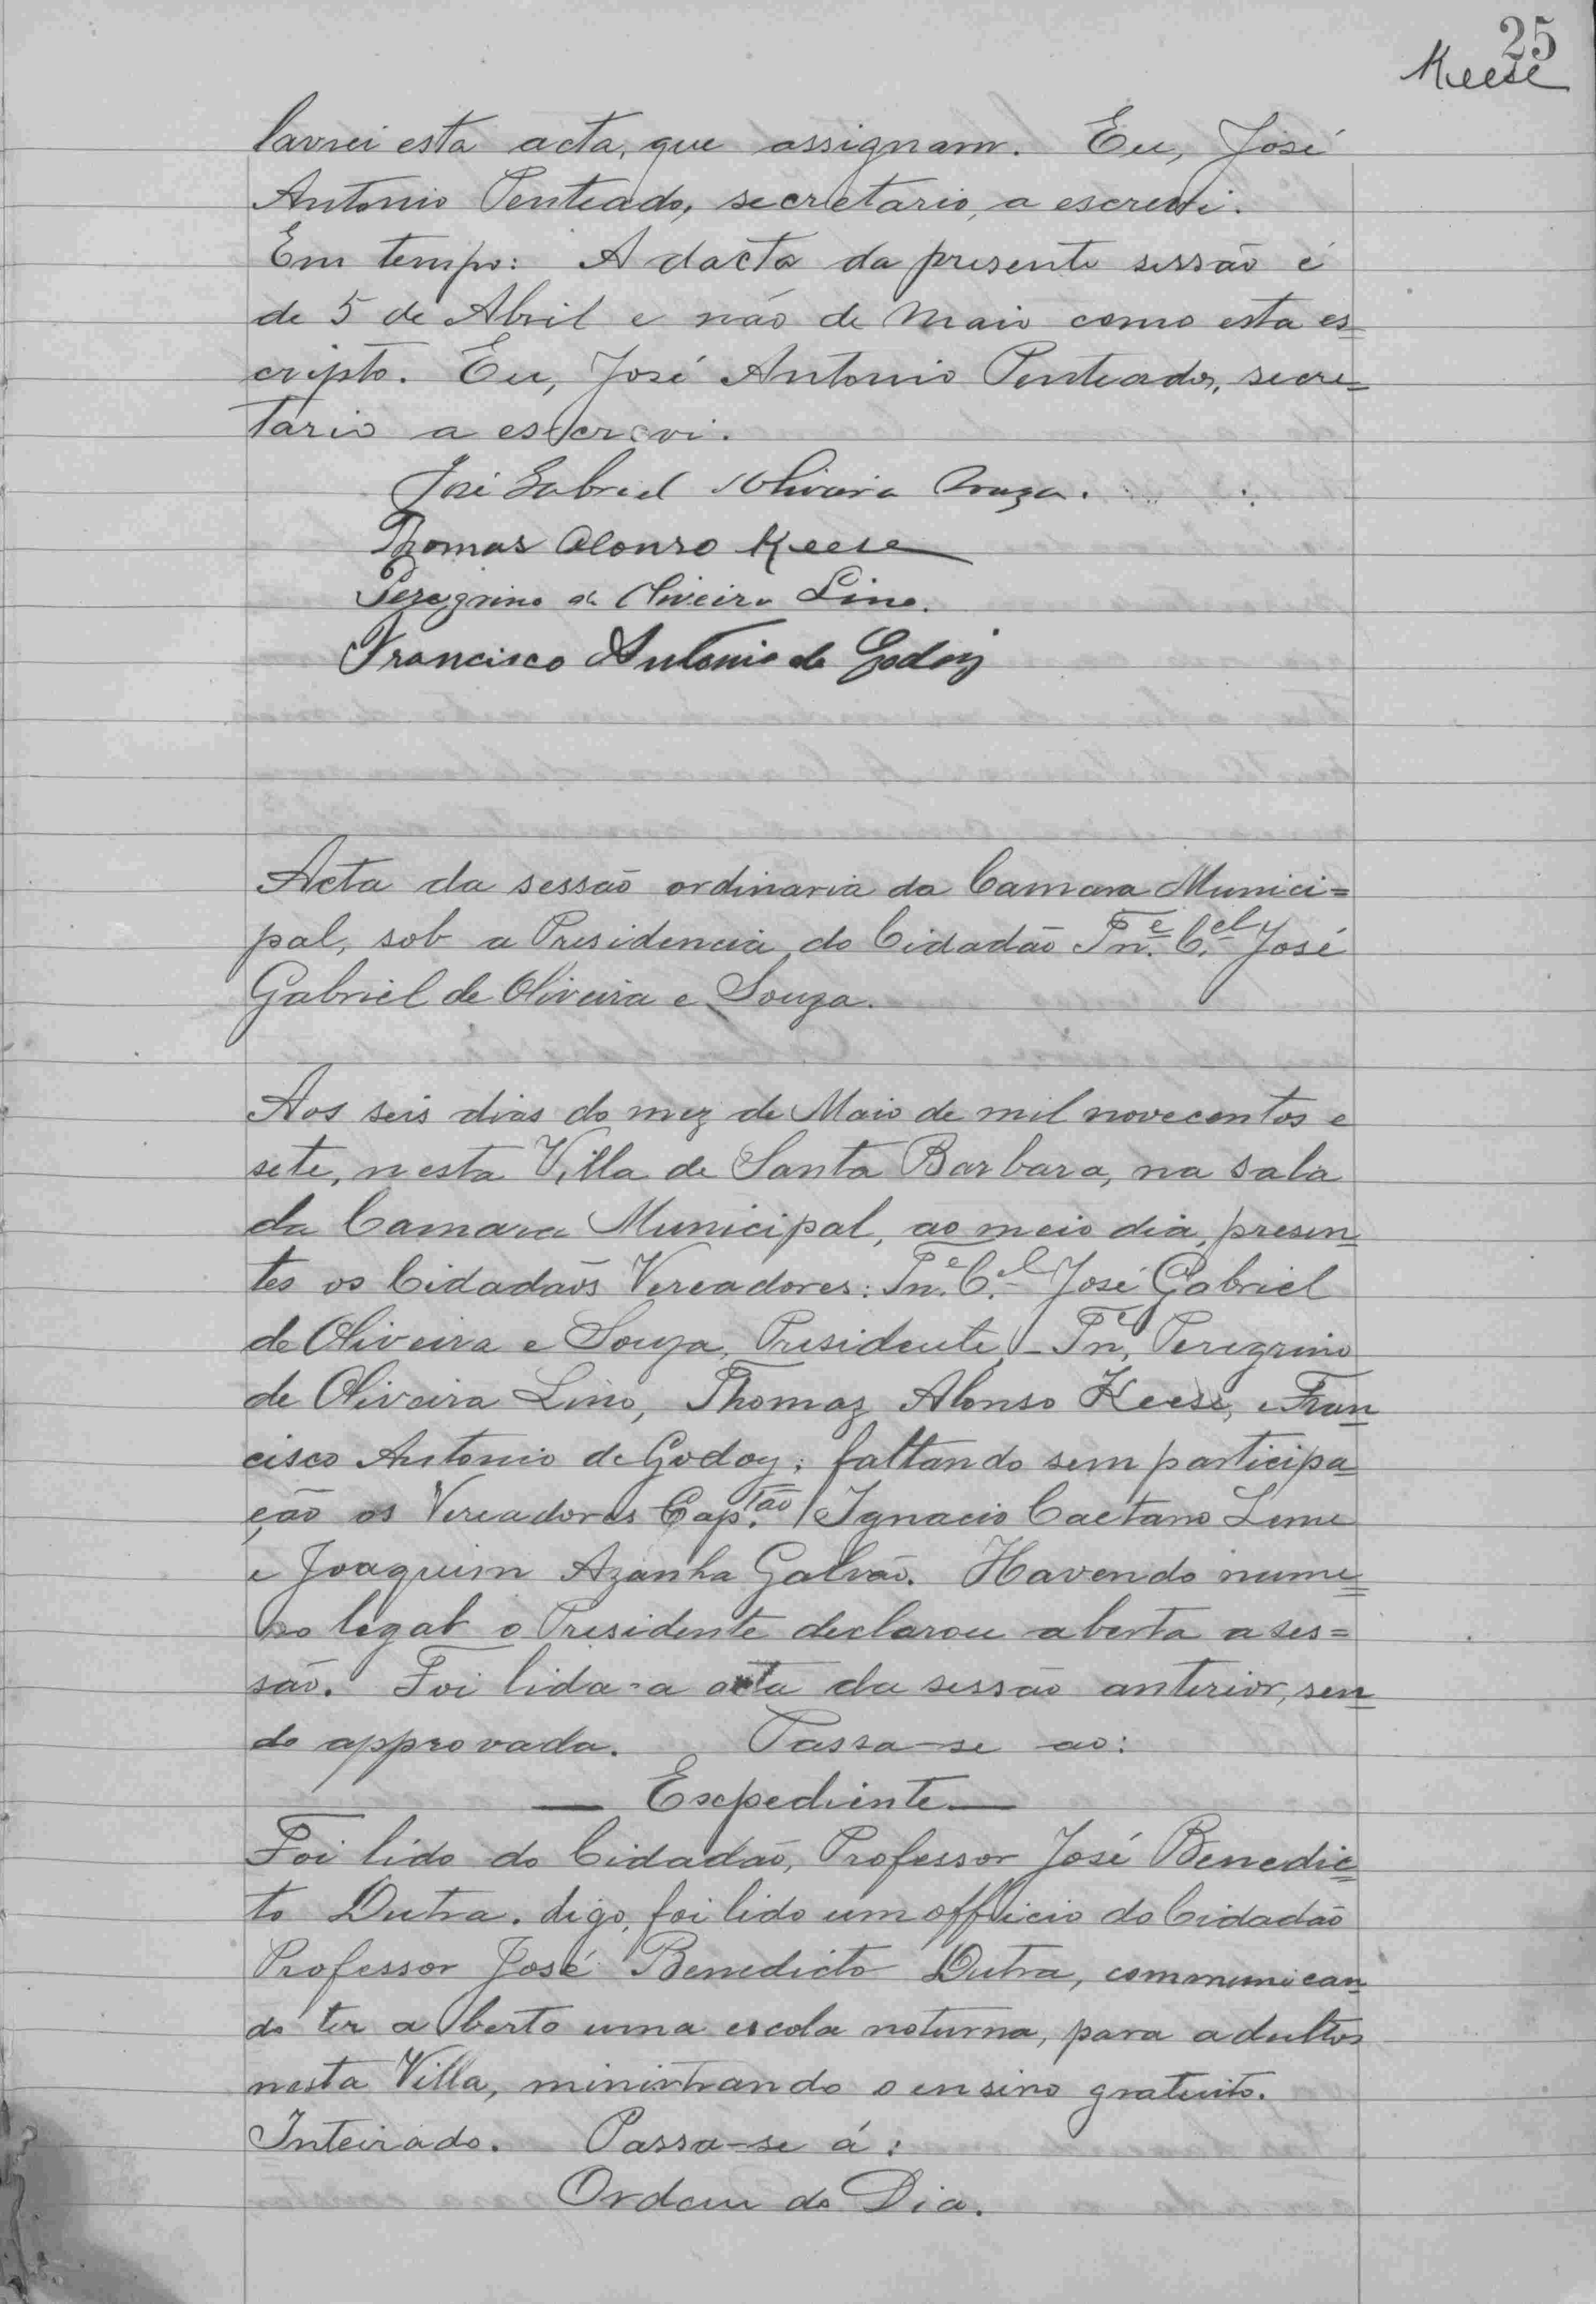 25
Keese
lavrei esta acta, que assignam. Eu, José
Antonio Penteado, secretario, a escrevi.
Em tempo: A dacta da presente sessão é
de 5 de Abril e não de Maio como esta es=
cripto. Eu, José Antonio Penteado, secre=
tario a escrevi.
José Gabriel Oliveira Souza.
Thomas Alonso Keese
Peregrino de Oliveira Lino.
Francisco Antonio de Godoy
Acta da sessão ordinaria da Camara Munici=
pal, sob a Presidencia do Cidadão Tn.e C.el José
Gabriel de Oliveira e Souza.
Aos seis dias do mez de Maio de mil novecentos e
sete, nesta Villa de Santa Barbara, na sala
da Camara Municipal, ao meio dia, presen=
tes os Cidadaõs Vereadores: Tn.e C.el José Gabriel
de Oliveira e Souza, Presidente, - Tn.e Peregrino
de Oliveira Lino, Thomaz Alonso Keese, e Fran=
cisco Antonio de Godoy; faltando sem participa=
ção os Vereadores Cap.tão Ignacio Caetano Leme
e Joaquim Azanha Galvão. Havendo nume=
ro legal o Presidente declarou aberta a ses=
são. Foi lida a acta da sessão anterior, sen=
do approvada. Passa-se ao:
— Expediente —
Foi lido do Cidadão, Professor José Benedic=
to Dutra, digo, foi lido um officio do Cidadão
Professor José Benedicto Dutra, communican=
do ter aberto uma escola noturna, para adultos
nesta Villa, ministrando o ensino gratuito.
Inteirado. Passa-se á:
Ordem do Dia.